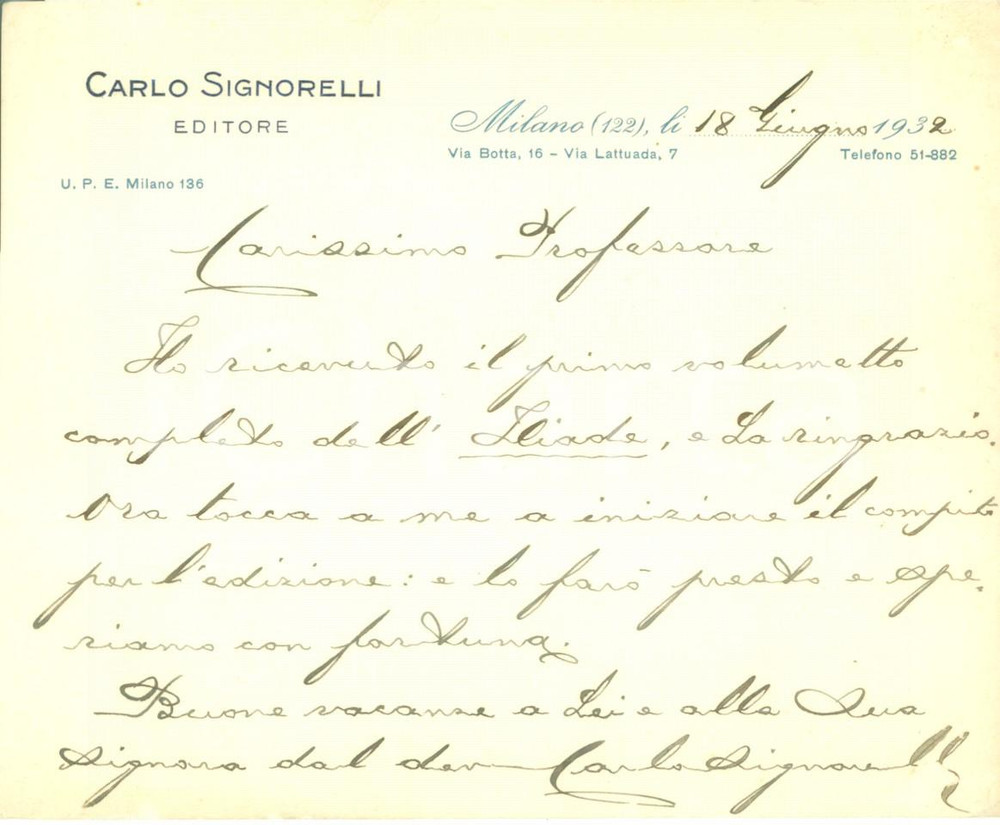 CARLO SIGNORELLI
EDITORE
Milano (122), li 18 Giugno 1932
Via Botta, 16 - Via Lattuada, 7 Telefono 51-882
U. P. E. Milano 136
Carissimo Professore
Ho ricevuto il primo volumetto
completo dell' Iliade, e La ringrazio.
Ora tocca a me a iniziare il compito
per l'edizione: e lo farò presto e spe-
riamo con fortuna.
Buone vacanze a Lei e alla Sua
Signora dal dev Carlo Signorelli